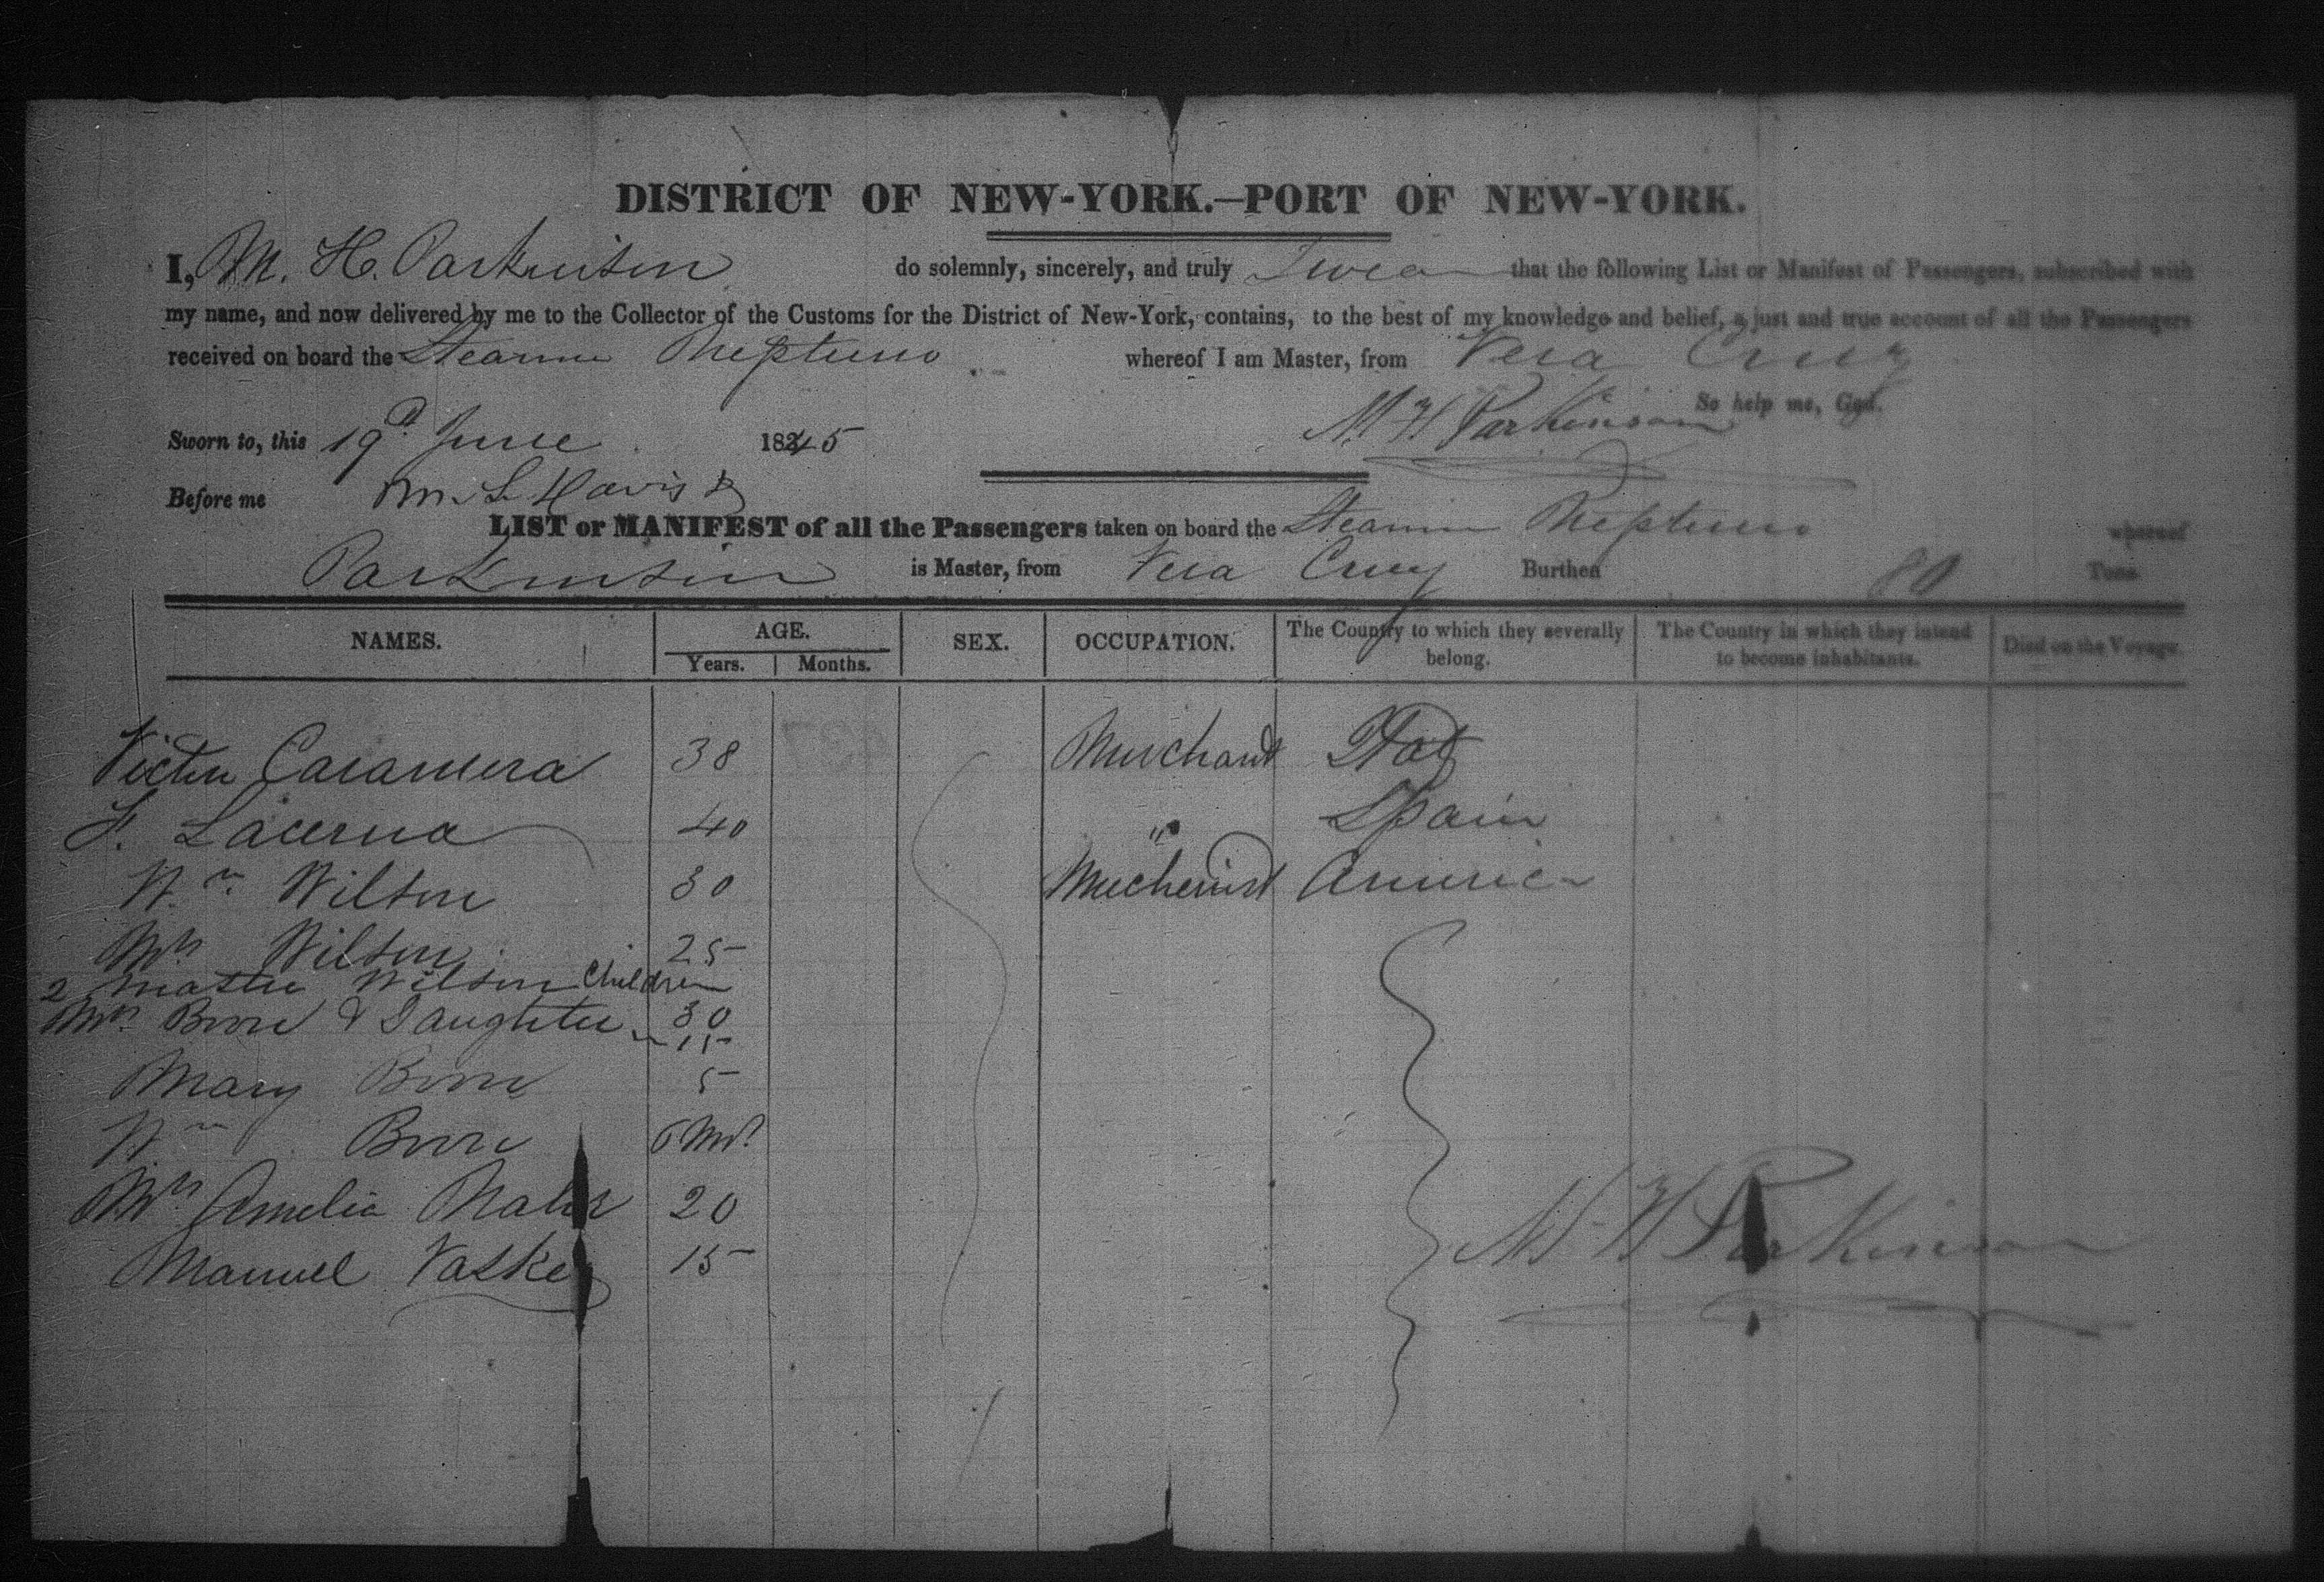 DISTRICT OF NEW-YORK.—PORT OF NEW-YORK.
I, M. H. Parkinson do solemnly, sincerely, and truly Swear that the following List or Manifest of Passengers, subscribed with
my name, and now delivered by me to the Collector of the Customs for the District of New-York, contains, to the best of my knowledge and belief, a just and true account of all the Passengers
received on board the Steamer Neptune whereof I am Master, from Vera Cruz
So help me, God.
M H Parkinson
Sworn to, this 19th June 1845
Before me M. L. Davis
LIST or MANIFEST of all the Passengers taken on board the Steamer Neptune whereof
Parkinson is Master, from Vera Cruz Burthen 80 Tons
NAMES. AGE. SEX. OCCUPATION. The Country to which they severally belong. The Country in which they intend to become inhabitants. Died on the Voyage.
Years. Months.
Victor Caramera 38 Merchant
F. Lacerna 40 " Spain
Wm Wilson 30 Mechanist America
Mrs Wilson 25
2 Master Wilson Children
Mrs & Daughter 30
15
Mary 5
Wm 6 Mos
Mrs Amelia 20
Manuel 15
M H Parkinson